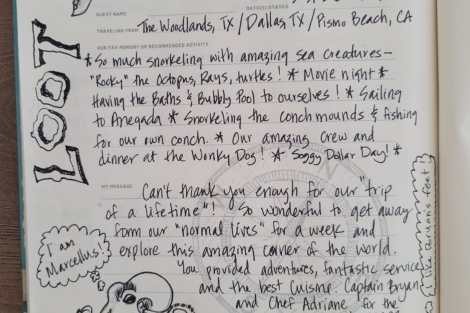 GUEST NAME
DATE(S) STAYED
TRAVELING FROM The Woodlands, TX / Dallas, TX / Pismo Beach, CA
OUR FAV MEMORY OR RECOMMENDED ACTIVITY
* So much snorkeling with amazing sea creatures-
"Rocky" the Octopus, Rays, turtles! * Movie night *
Having the Baths & Bubbly Pool to ourselves! * Sailing
to Anegada * Snorkeling the conch mounds & fishing
for our own conch. * Our amazing crew and
dinner at the Wonky Dog! * Soggy Dollar Day! *
LOOT
MY MESSAGE
Can't thank you enough for our "trip
of a lifetime"! So wonderful to get away
from our "normal lives" for a week and
explore this amazing corner of the world.
You provided adventures, fantastic service
and the best cuisine. Captain Bryan
and Chef Adriane for the
I am
Marcellus!
I like Bryan's feet